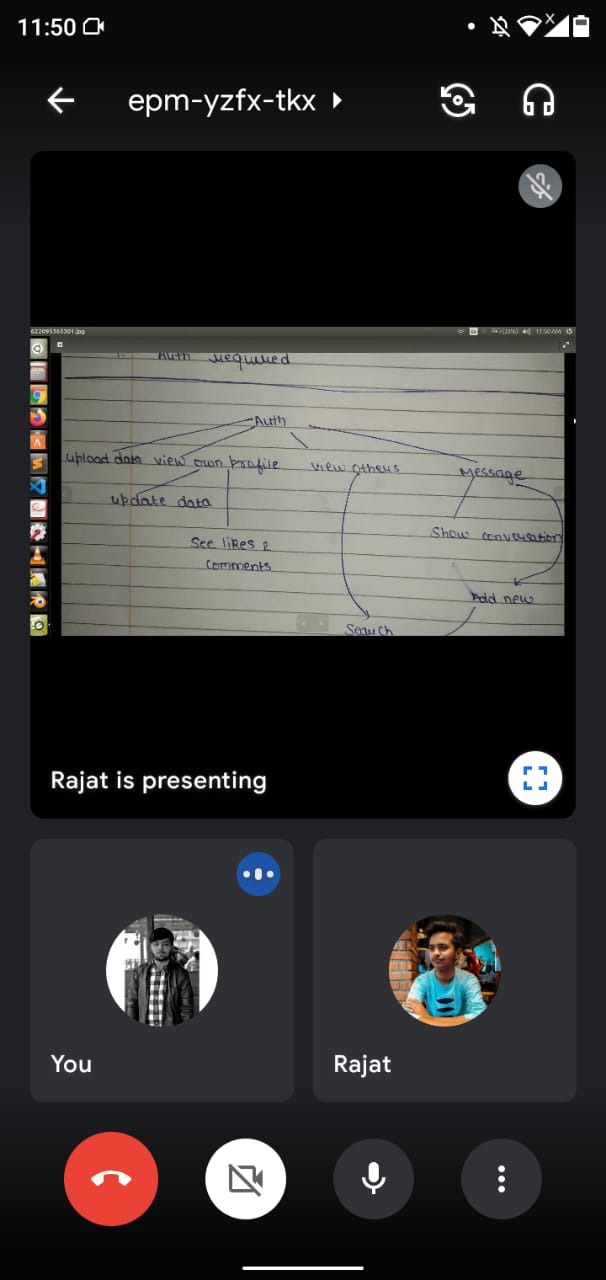 11:50
epm-yzfx-tkx
622095363301.jpg
(33%) 11:50 AM
1. Auth required
Auth
upload data view own profile view others Message
update data
Show conversation
See likes &
Comments
Add new
Search
Rajat is presenting
You
Rajat